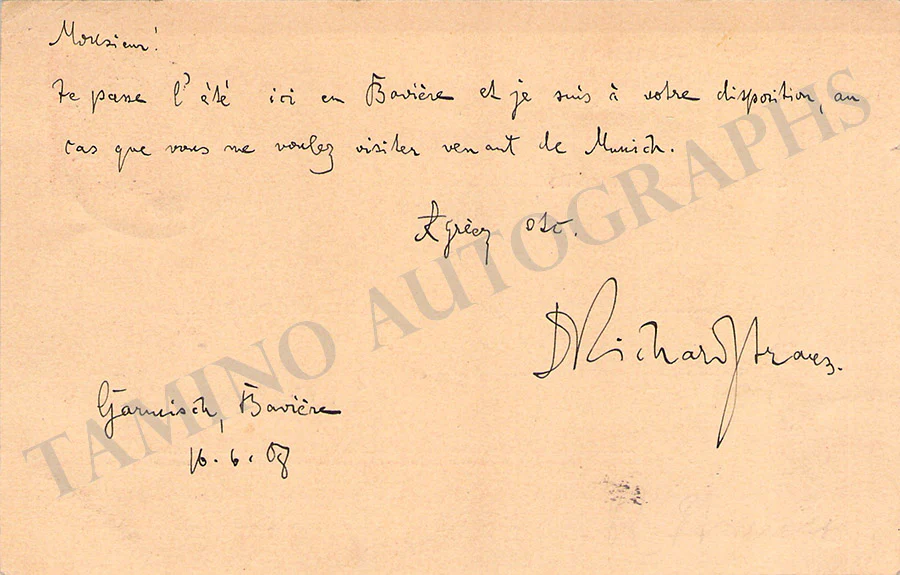 Monsieur!
Je passe l'été ici en Bavière et je suis à votre disposition, au
cas que vous me voulez visiter venant de Munich.
Agréez etc.
D Richard Strauss.
Garmisch, Bavière
16. 6. 08
TAMINO AUTOGRAPHS